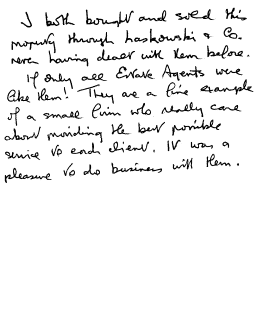 I both bought and sold this
property through Laskowski & Co.
never having dealt with them before.
If only all Estate Agents were
like them! They are a fine example
of a small firm who really care
about providing the best possible
service to each client. It was a
pleasure to do business with them.